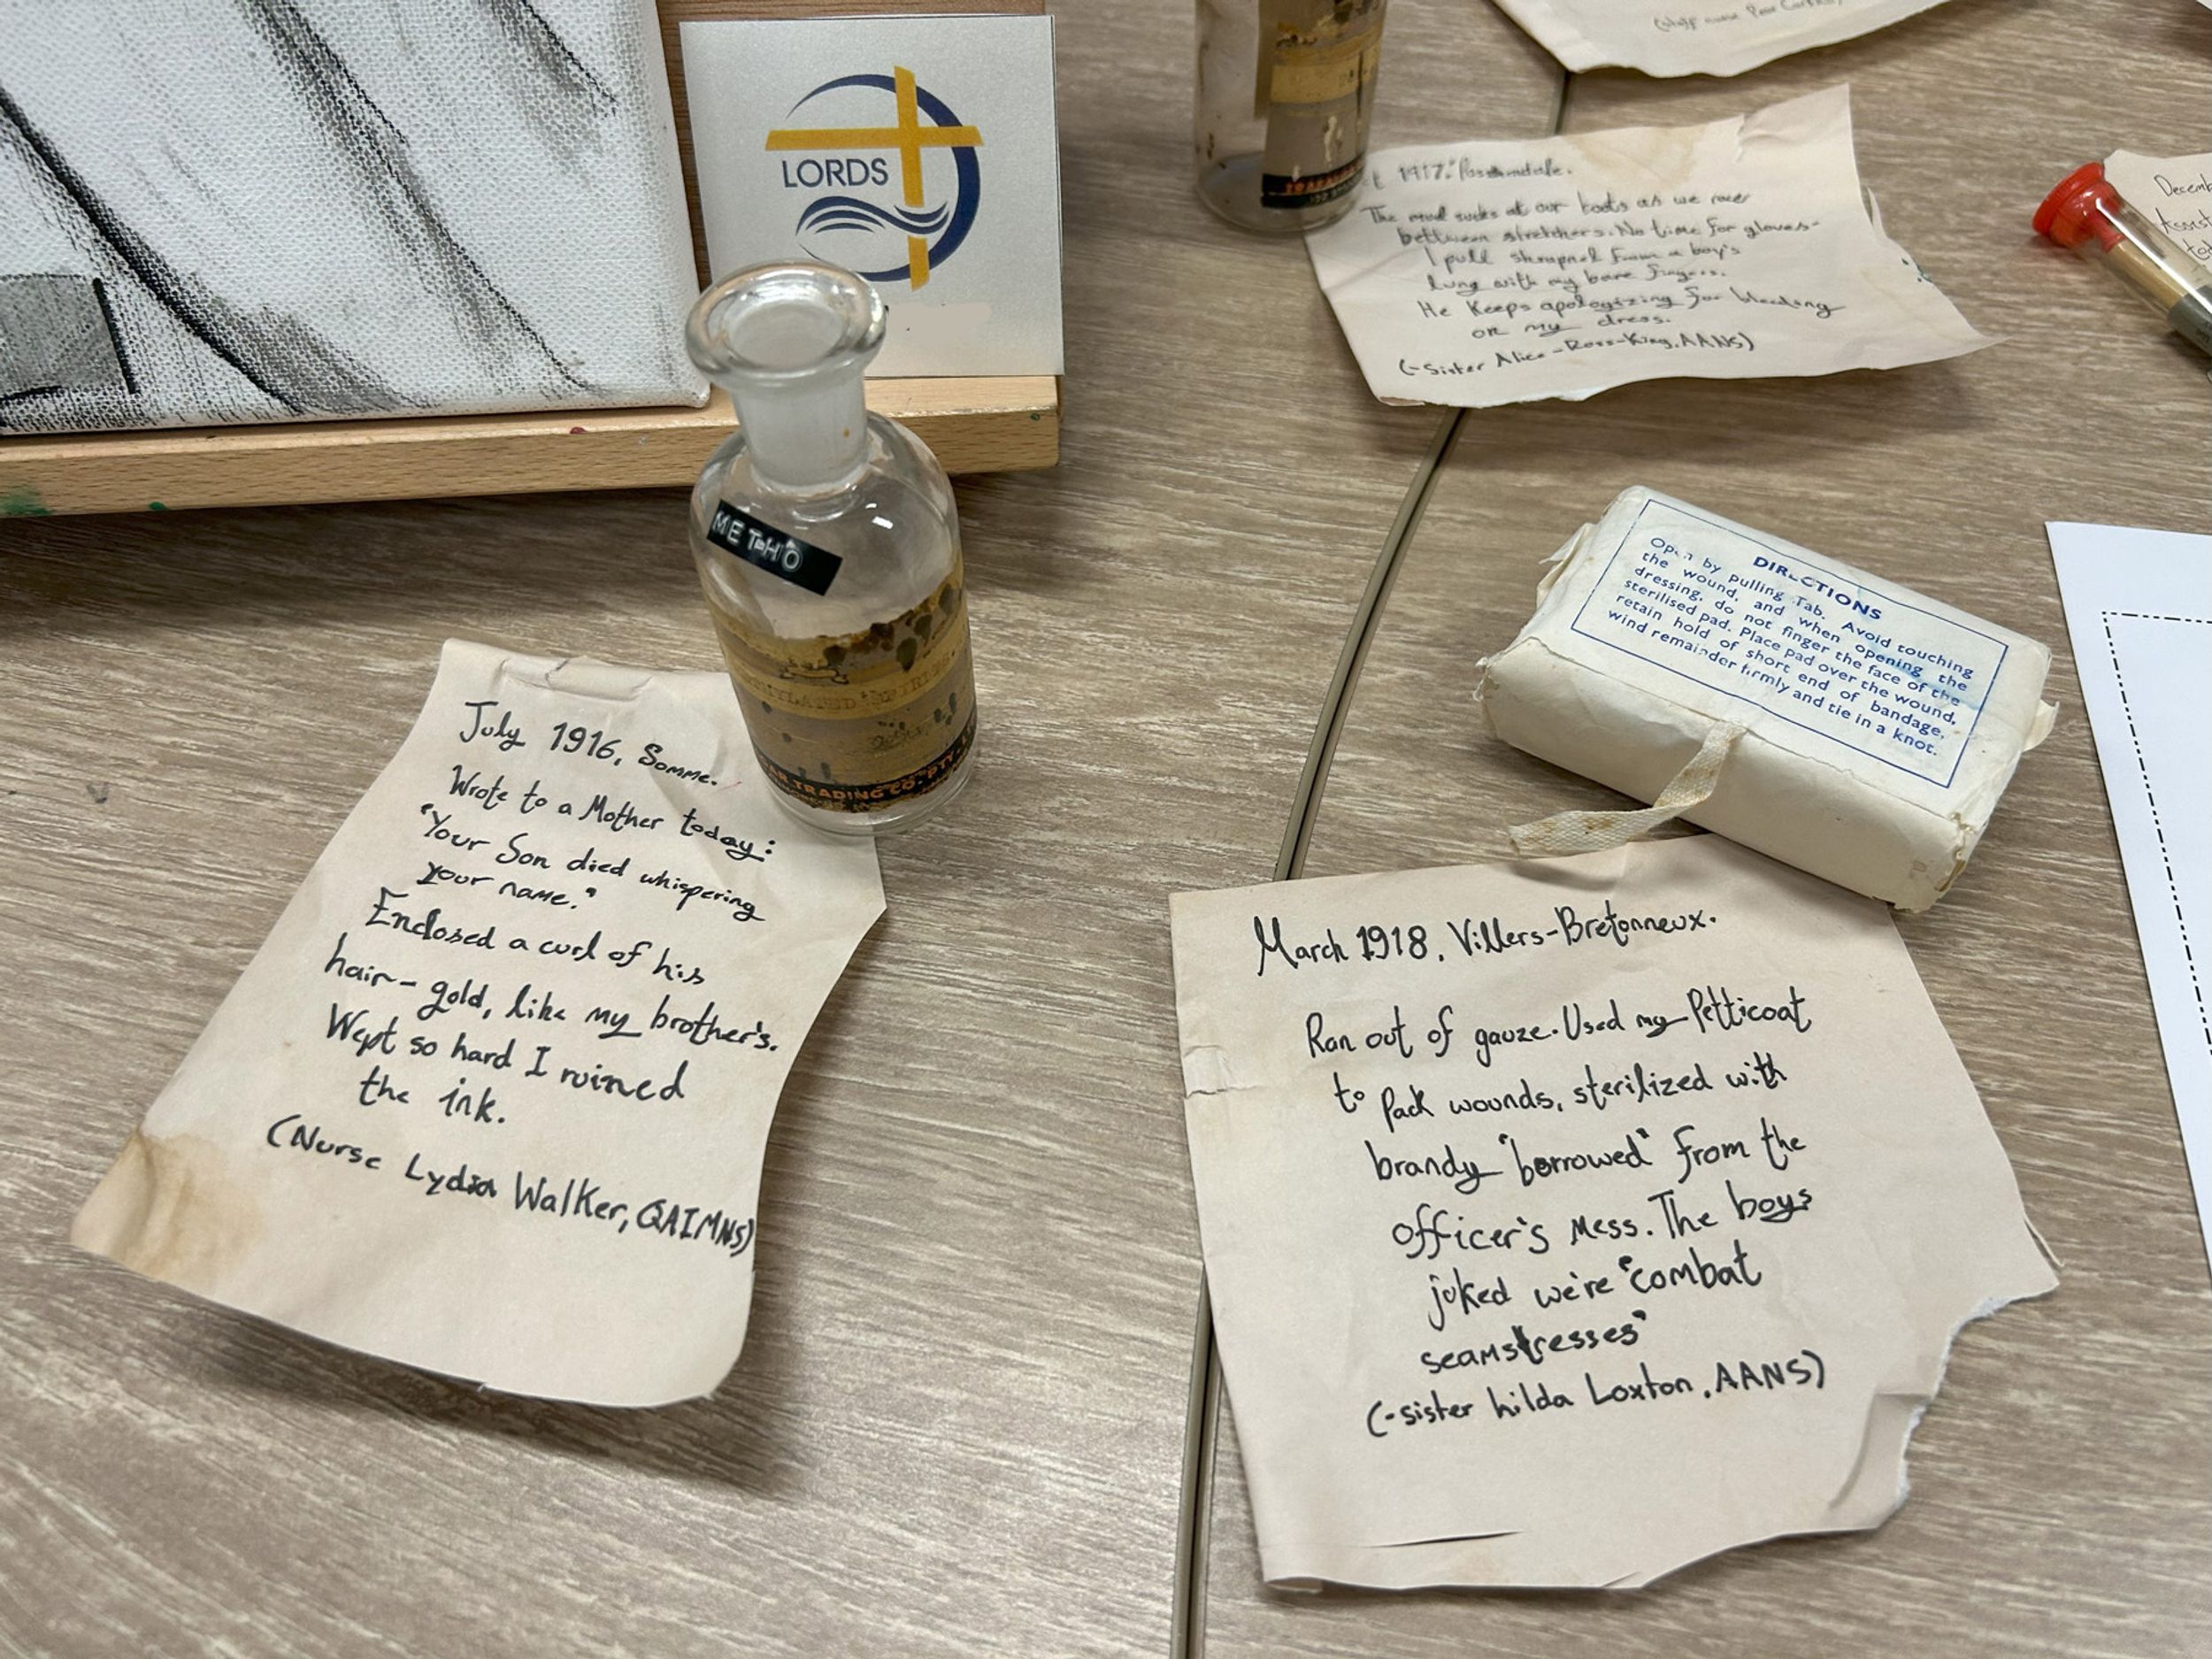 LORDS
METHO
METHYLATED SPIRITS
TRADING CO. PTY.
July 1916, Somme.
Wrote to a Mother today:
"Your Son died whispering
your name."
Enclosed a curl of his
hair- gold, like my brother's.
Wept so hard I ruined
the ink.
(Nurse Lydia Walker, QAIMNS)
1917. Passchendale.
The mud sucks at our boots as we race
between stretchers. No time for gloves-
I pull shrapnel from a boy's
lung with my bare fingers.
He keeps apologizing for bleeding
on my dress.
(-Sister Alice-Ross-King, AANS)
DIRECTIONS
Open by pulling Tab. Avoid touching
the wound, and when opening the
dressing, do not finger the face of the
sterilised pad. Place pad over the wound,
retain hold of short end of bandage,
wind remainder firmly and tie in a knot.
March 1918, Villers-Bretonneux.
Ran out of gauze. Used my Petticoat
to Pack wounds, sterilized with
brandy "borrowed" from the
officer's mess. The boys
joked we're "combat
seamstresses"
(-sister hilda Loxton, AANS)
Decemb
Assist